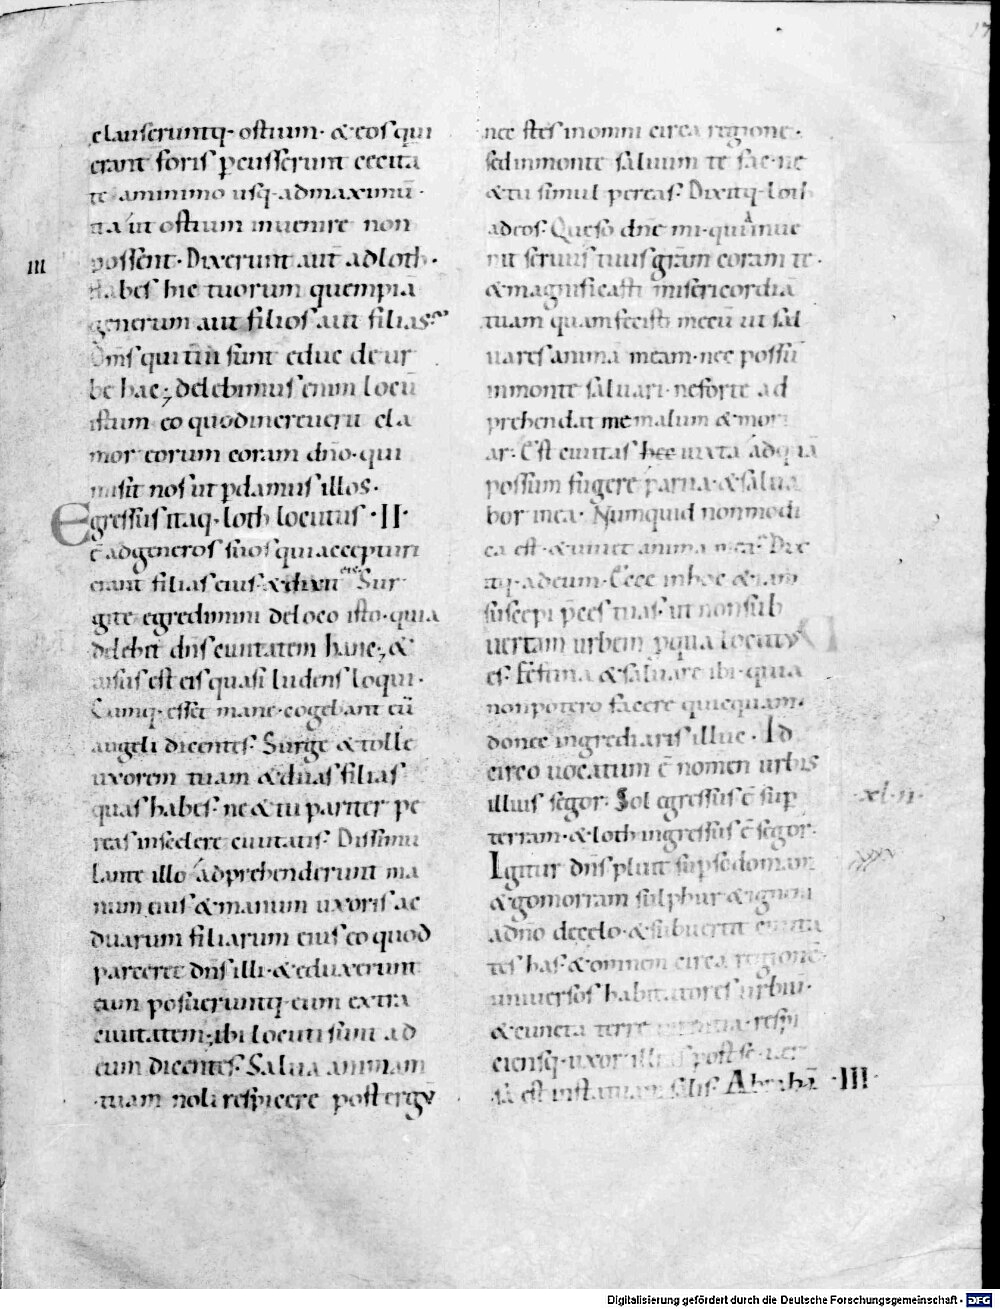 clauseruntq· ostium· & eos qui
erant foris pcusserunt cecita
te aminimo usq· admaximū·
ita ut ostium inuenire non
possent· Dixerunt aut̄ adloth·
III
Habes hic tuorum quempiā
generum aut filios aut filias·
Om̄s qui tui sunt educ de ur
be hac; delebimus enim locū
istum eo quod increuerit cla
mor eorum coram dn̄o· qui
misit nos ut pdamus illos·
Egressus itaq· loth locutus ·II·
ē adgeneros suos qui accepturi
erant filias eius· & dixit Sur
gite egredimini deloco isto· quia
delebit dn̄s ciuitatem hanc; &
uisus est eis quasi ludens loqui·
Cumq· esset mane· cogebant eū
angeli dicentes· Surge & tolle
uxorem tuam & duas filias
quas habes· ne & tu pariter pe
reas inscelere ciuitatis· Dissimu
lante illo adprehenderunt ma
num eius & manum uxoris ac
duarum filiarum eius eo quod
parceret dn̄s illi· & eduxerunt
eum posueruntq· eum extra
ciuitatem; ibi locuti sunt ad
eum dicentes· Salua animam
·tuam noli respicere post ergū
nec stes inomni circa regione·
sed inmonte saluum te fac· ne
& tu simul pereas· Dixitq· loth
adeos· Queso dn̄e mi· quia inue
nit seruus tuus gr̄am coram te·
& magnificasti misericordiā
tuam quam fecisti mecū ut sal
uares animā meam· nec possū
inmonte saluari· neforte ad
prehendat me malum & mori
ar· Est ciuitas hec iuxta adquā
possum fugere parua· & salua
bor inea· Numquid nonmodi
ca est· & uiuet anima mea· Dix
itq· adeum· Ecce inhoc & iam
suscepi p̄ces tuas· ut nonsub
uertam urbem pqua locutus
es· Festina & saluare ibi· quia
nonpotero facere quicquam·
donec ingrediaris illuc· Id
circo uocatum ē nomen urbis
illius segor· Sol egressus ē sup
·xl·ii·
terram· & loth ingressus ē segor·
Igitur dn̄s pluit supsodomam
& gomorram sulphur & ignem
adn̄o decelo· & subuertit ciuita
tes has· & omnem circa regionē·
uniuersos habitatores urbiū·
& cuncta terre uirentia· respi
ciensq· uxor illius post se· uer
sa est instatuam salis· Abrahā ·III·
Digitalisierung gefördert durch die Deutsche Forschungsgemeinschaft - DFG